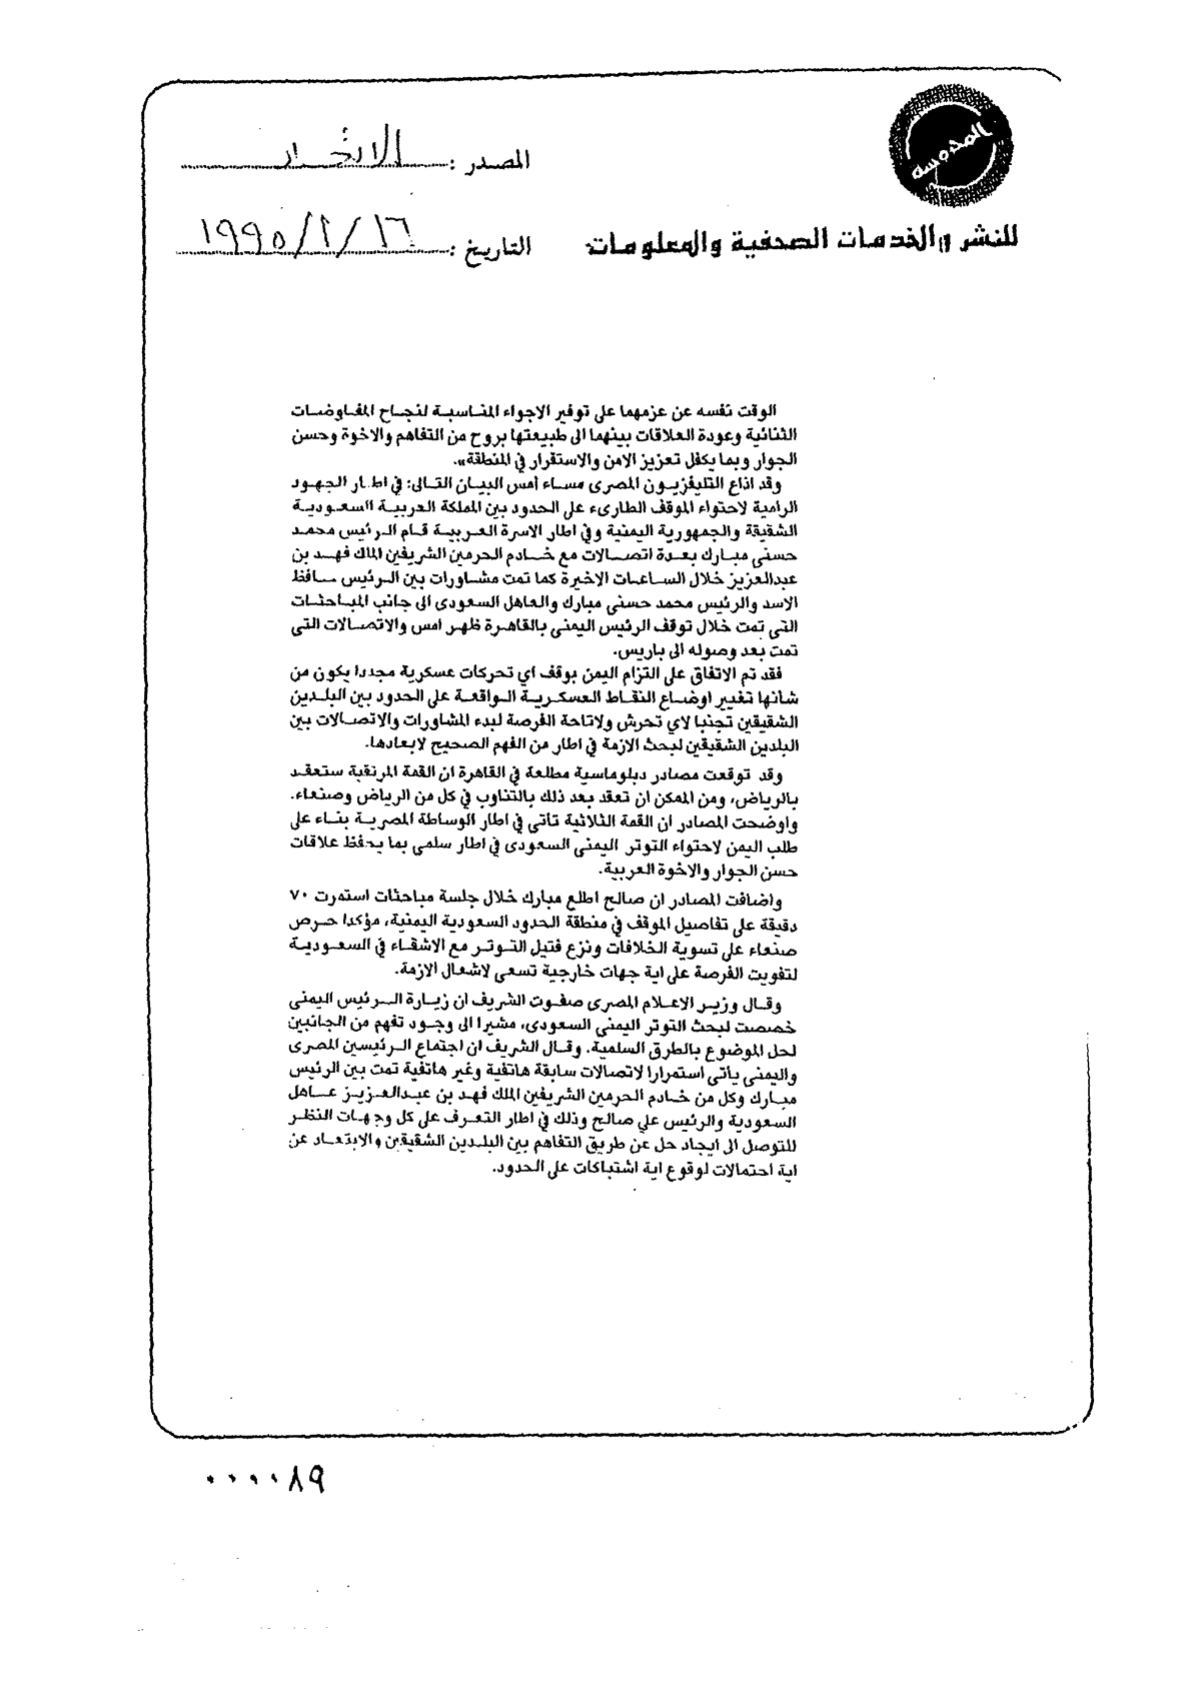 المدوسه
للنشر والخدمات الصحفية والمعلومات
المصدر : الاتحاد
التاريخ : ١٦/١/١٩٩٥
الوقت نفسه عن عزمهما على توفير الاجواء المناسبة لنجاح المفاوضات
الثنائية وعودة العلاقات بينهما الى طبيعتها بروح من التفاهم والاخوة وحسن
الجوار وبما يكفل تعزيز الامن والاستقرار في المنطقة».
وقد اذاع التليفزيون المصرى مساء أمس البيان التالى: في اطار الجهود
الرامية لاحتواء الموقف الطارىء على الحدود بين المملكة العربية السعودية
الشقيقة والجمهورية اليمنية وفي اطار الاسرة العربية قام الرئيس محمد
حسنى مبارك بعدة اتصالات مع خادم الحرمين الشريفين الملك فهد بن
عبدالعزيز خلال الساعات الاخيرة كما تمت مشاورات بين الرئيس حافظ
الاسد والرئيس محمد حسنى مبارك والعاهل السعودى الى جانب المباحثات
التى تمت خلال توقف الرئيس اليمنى بالقاهرة ظهر امس والاتصالات التى
تمت بعد وصوله الى باريس.
فقد تم الاتفاق على التزام اليمن بوقف اي تحركات عسكرية مجددا يكون من
شانها تغيير اوضاع النقاط العسكرية الواقعة على الحدود بين البلدين
الشقيقين تجنبا لاي تحرش ولاتاحة الفرصة لبدء المشاورات والاتصالات بين
البلدين الشقيقين لبحث الازمة في اطار من الفهم الصحيح لابعادها.
وقد توقعت مصادر دبلوماسية مطلعة في القاهرة ان القمة المرتقبة ستعقد
بالرياض، ومن الممكن ان تعقد بعد ذلك بالتناوب في كل من الرياض وصنعاء.
واوضحت المصادر ان القمة الثلاثية تأتى في اطار الوساطة المصرية بناء على
طلب اليمن لاحتواء التوتر اليمنى السعودى في اطار سلمى بما يحفظ علاقات
حسن الجوار والاخوة العربية.
واضافت المصادر ان صالح اطلع مبارك خلال جلسة مباحثات استمرت ٧٠
دقيقة على تفاصيل الموقف في منطقة الحدود السعودية اليمنية، مؤكدا حرص
صنعاء على تسوية الخلافات ونزع فتيل التوتر مع الاشقاء في السعودية
لتفويت الفرصة على اية جهات خارجية تسعى لاشعال الازمة.
وقال وزير الاعلام المصرى صفوت الشريف ان زيارة الرئيس اليمنى
خصصت لبحث التوتر اليمنى السعودى، مشيرا الى وجود تفهم من الجانبين
لحل الموضوع بالطرق السلمية. وقال الشريف ان اجتماع الرئيسين المصرى
واليمنى ياتى استمرارا لاتصالات سابقة هاتفية وغير هاتفية تمت بين الرئيس
مبارك وكل من خادم الحرمين الشريفين الملك فهد بن عبدالعزيز عاهل
السعودية والرئيس علي صالح وذلك في اطار التعرف على كل وجهات النظر
للتوصل الى ايجاد حل عن طريق التفاهم بين البلدين الشقيقين والابتعاد عن
اية احتمالات لوقوع اية اشتباكات على الحدود.
٠٠٠٠٨٩